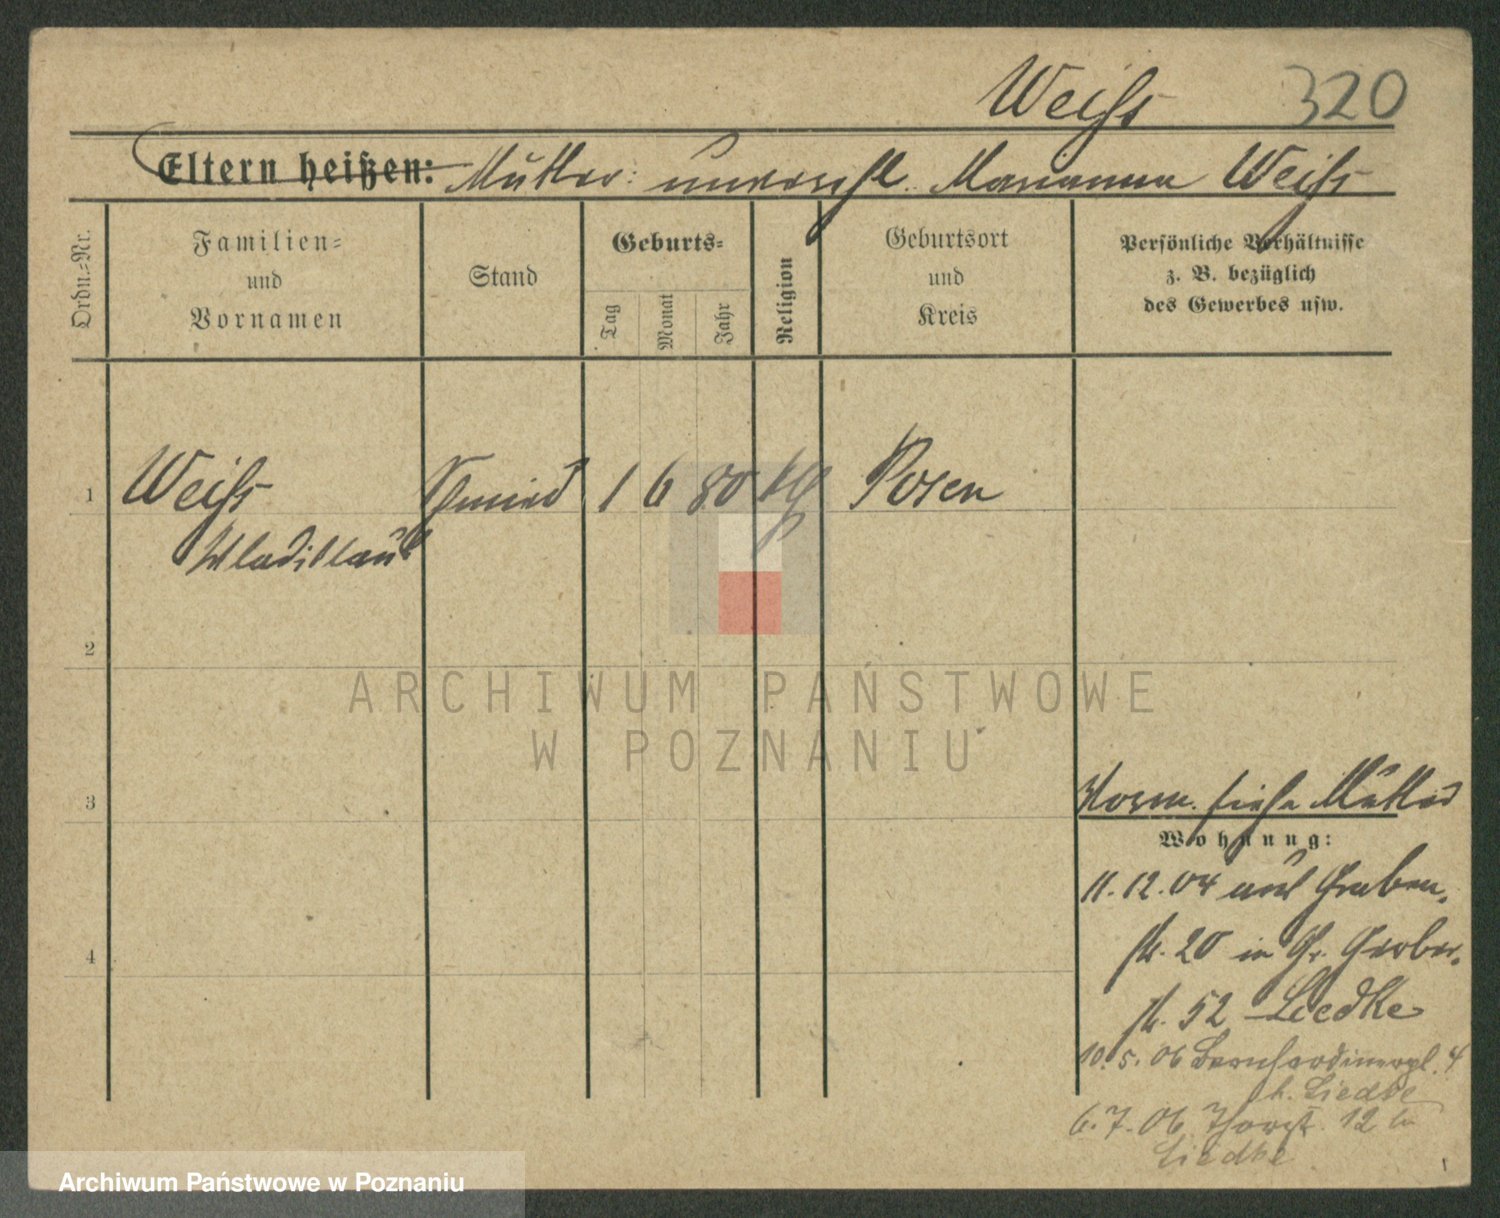 Weiß 320
Eltern heißen: Mutter: unverehl. Marianna Weiß
Ordn.-Nr.
Familien-
und
Vornamen
Stand
Geburts-
Tag
Monat
Jahr
Religion
Geburtsort
und
Kreis
Persönliche Verhältnisse
z. B. bezüglich
des Gewerbes usw.
1 Weiß Schmied 1 6 80 kth Posen
Wladislaus
2
3
4
Vorm. siehe Mutter
Wohnung:
11.12.04 aus Graben-
str. 20 in Gr. Gerber-
str. 52 Liedke
10.5.06 Bernhardinerpl. 4
b. Liedke
6.7.06 Thorst. 12 bei
Liedke
ARCHIWUM PAŃSTWOWE
W POZNANIU
Archiwum Państwowe w Poznaniu